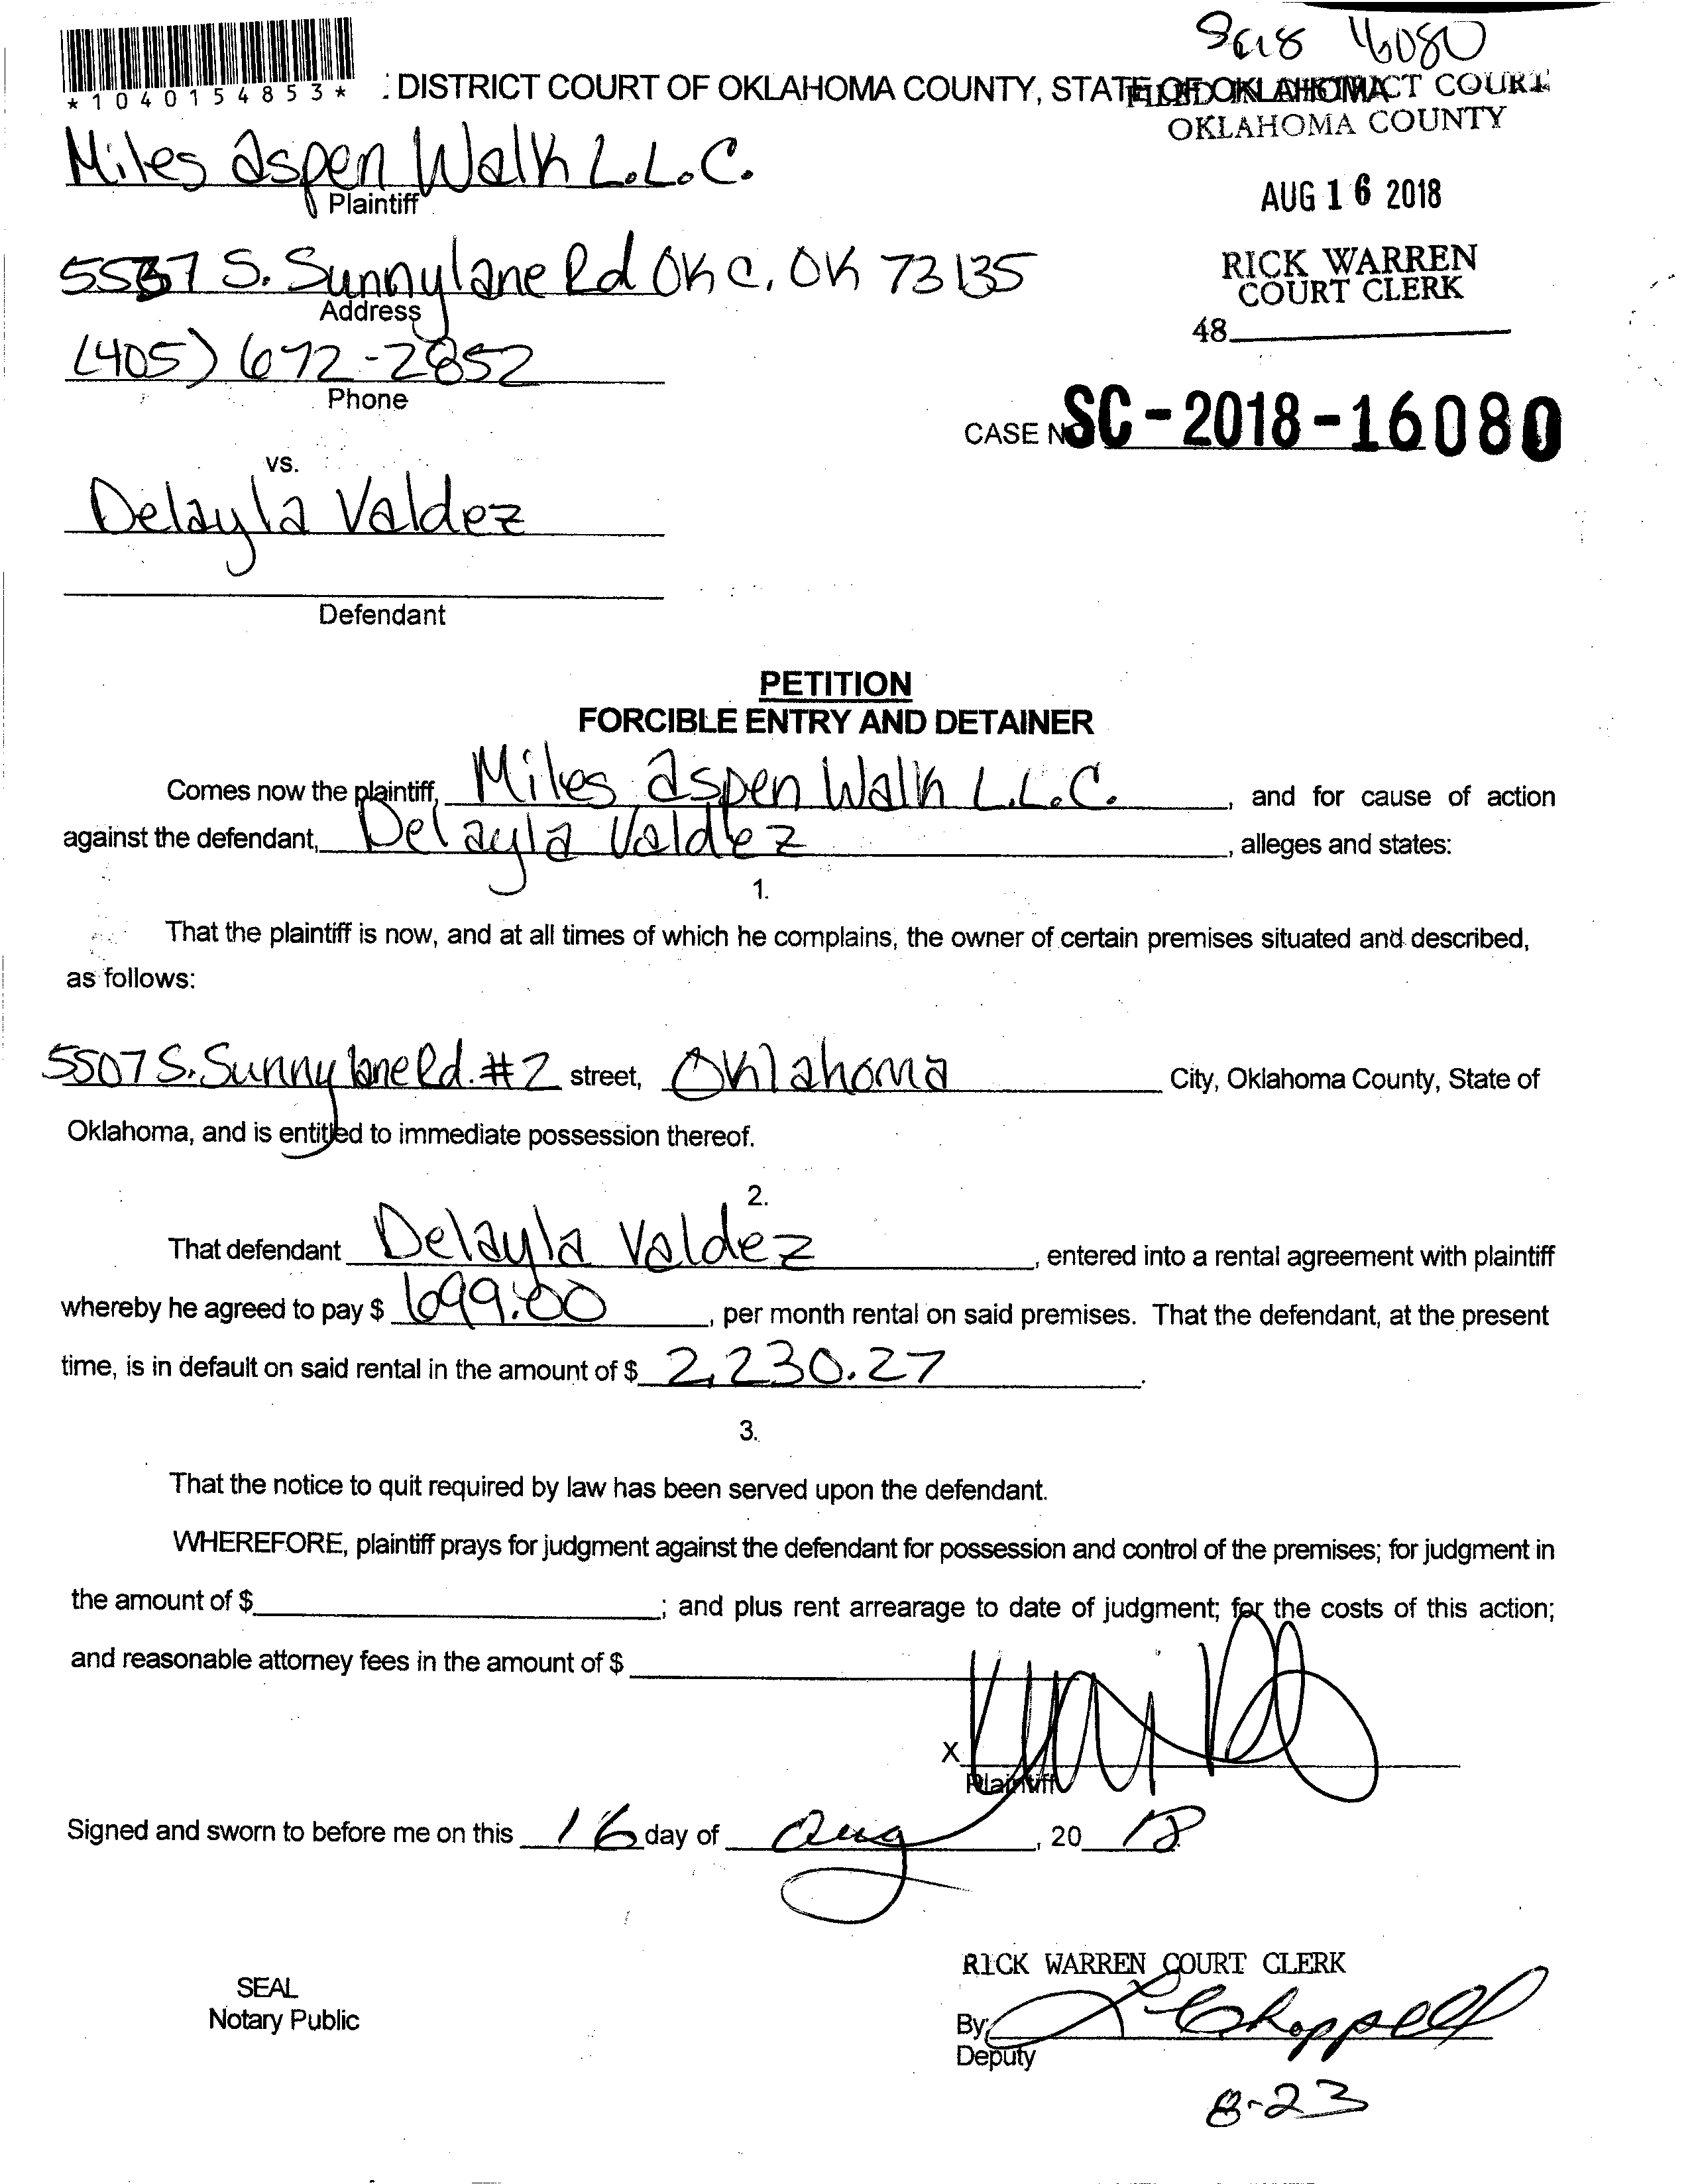 16080
*1040154853*
: DISTRICT COURT OF OKLAHOMA COUNTY, STATE OF OKLAHOMA
FILED IN DISTRICT COURT
OKLAHOMA COUNTY
Miles aspen Walk L.L.C.
Plaintiff
AUG 16 2018
5537 S. Sunnylane Rd OKC, OK 73135
Address
RICK WARREN
COURT CLERK
48
(405) 672-2852
Phone
CASE No SC-2018-16080
vs.
Delayla Valdez
Defendant
PETITION
FORCIBLE ENTRY AND DETAINER
Comes now the plaintiff, Miles aspen Walk L.L.C. , and for cause of action
against the defendant, Delayla Valdez , alleges and states:
1.
That the plaintiff is now, and at all times of which he complains, the owner of certain premises situated and described,
as follows:
5507 S. Sunnylane Rd. #2 street, Oklahoma City, Oklahoma County, State of
Oklahoma, and is entitled to immediate possession thereof.
2.
That defendant Delayla Valdez , entered into a rental agreement with plaintiff
whereby he agreed to pay $ 699.00 , per month rental on said premises. That the defendant, at the present
time, is in default on said rental in the amount of $ 2,230.27 .
3.
That the notice to quit required by law has been served upon the defendant.
WHEREFORE, plaintiff prays for judgment against the defendant for possession and control of the premises; for judgment in
the amount of $ ; and plus rent arrearage to date of judgment; for the costs of this action;
and reasonable attorney fees in the amount of $
X
Plaintiff
Signed and sworn to before me on this 16 day of Aug , 20 18
RICK WARREN COURT CLERK
SEAL
Notary Public
By: Chappell
Deputy
8-23